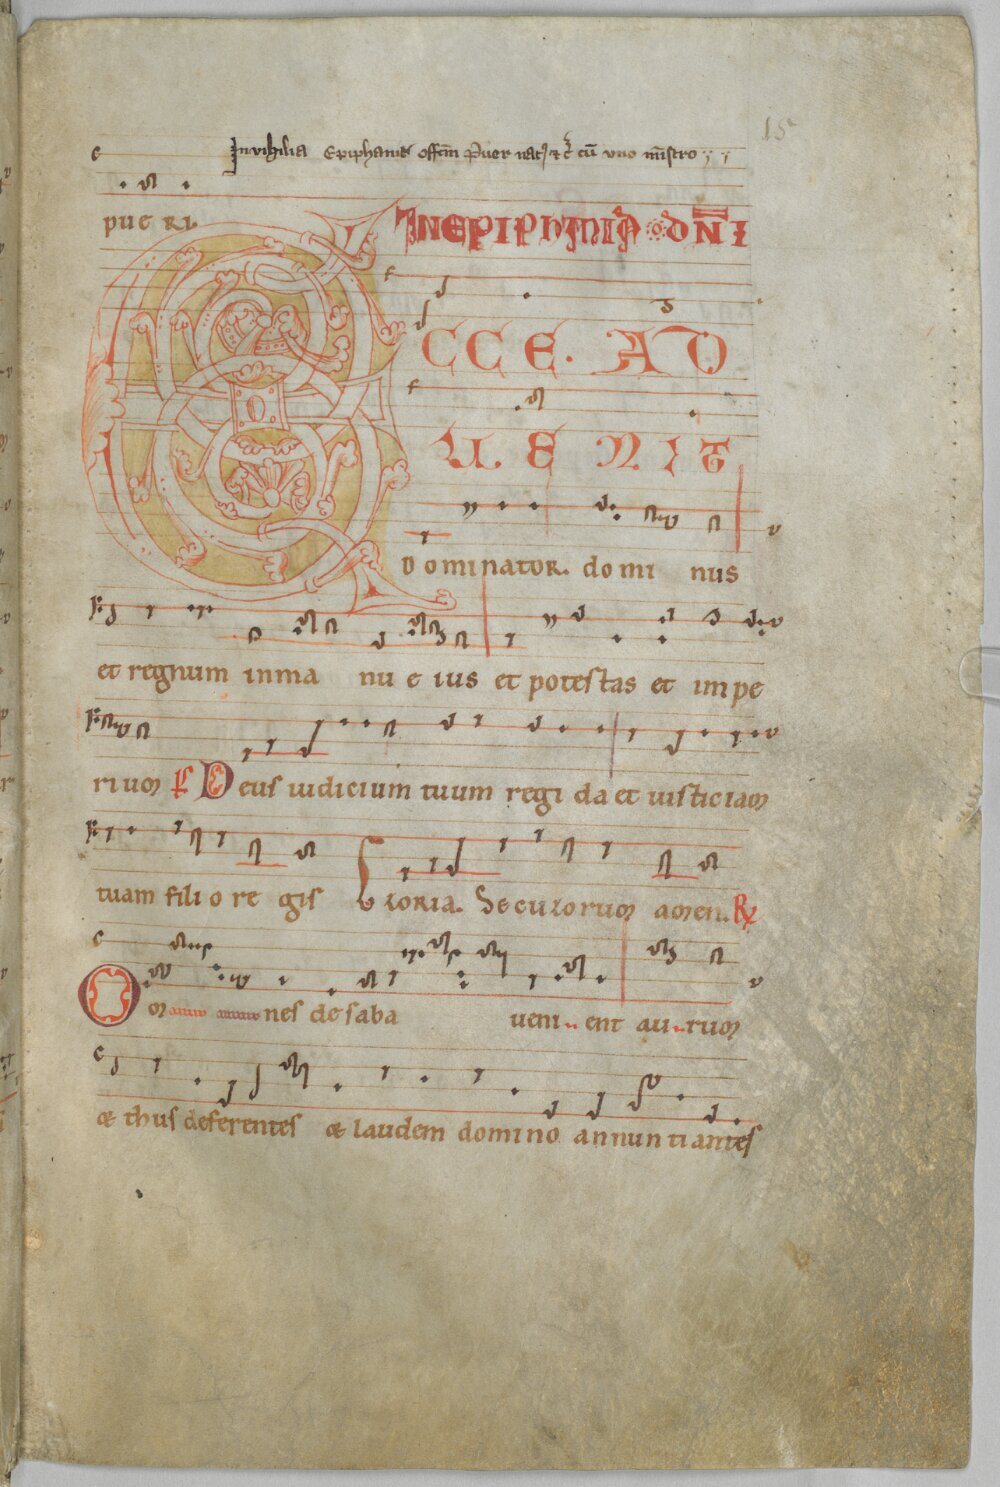 15
In vigilia Epiphanie offm Puer nat⁊ ⁊ c̄ cū uno mīstro
pue ri.
IN EPIPHANIA DNI
ECCE. AD
U. E N I T
Dominator. domi nus
et regnum inma nu e ius et potestas et impe
rium Ps Deus iudicium tuum regi da et iusticiam
tuam filio re gis Gloria. Seculorum amen. R
Om nes de saba ueni ent aurum
& thus deferentes & laudem domino annuntiantes